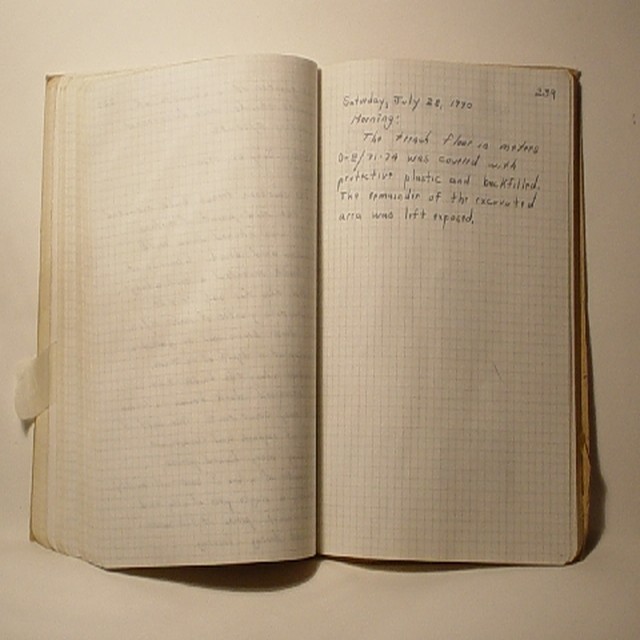 239
Saturday, July 28, 1990
Morning:
The trench floor in meters
0-8/71-74 was covered with
protective plastic and backfilled.
The remainder of the excavated
area was left exposed.